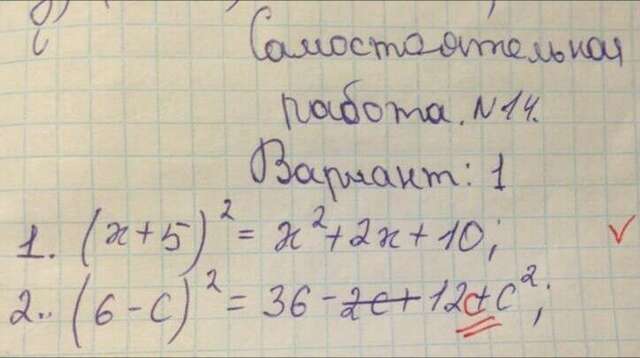 Самостоятельная
работа. N14.
Вариант: 1
1. (x+5)² = x²+2x+10;
2.. (6-c)² = 36-2c+12c+c²;